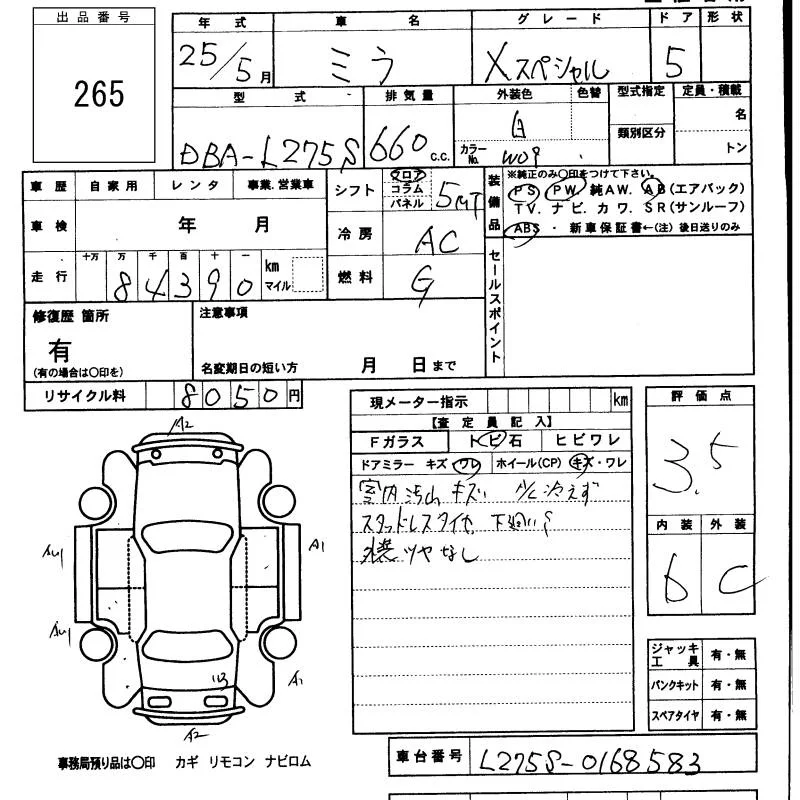 出品番号
265
年式 車名 グレード ドア 形状
25/5月 ミラ Xスペシャル 5
型式 排気量 外装色 色替 型式指定 定員・積載
DBA-L275S 660c.c. 白 名
カラーNo. W09 類別区分 トン
車歴 自家用 レンタ 事業.営業車
車検 年 月
走行 十万 万 千 百 十 一 km マイル
84390
シフト フロア コラム パネル 5MT
冷房 AC
燃料 G
装備品
※純正のみ○印をつけて下さい。
PS PW 純AW. AB(エアバック)
TV. ナビ. カワ. SR(サンルーフ)
ABS ・ 新車保証書←(注) 後日送りのみ
セールスポイント
修復歴 箇所
有
(有の場合は○印を)
注意事項
名変期日の短い方 月 日まで
リサイクル料 8050円
現メーター指示 km
【査定員記入】
Fガラス トビ石 ヒビワレ
ドアミラー キズ ワレ ホイール(CP) キズ・ワレ
室内汚れ キズ 少し冷えず
スタッドレスタイヤ 下廻りS
外装ツヤなし
評価点
3.5
内装 外装
D C
A2
AU1
A1
AU1
A1
U3
A2
ジャッキ工具 有・無
パンクキット 有・無
スペアタイヤ 有・無
事務局預り品は○印 カギ リモコン ナビロム
車台番号 L275S-0168583